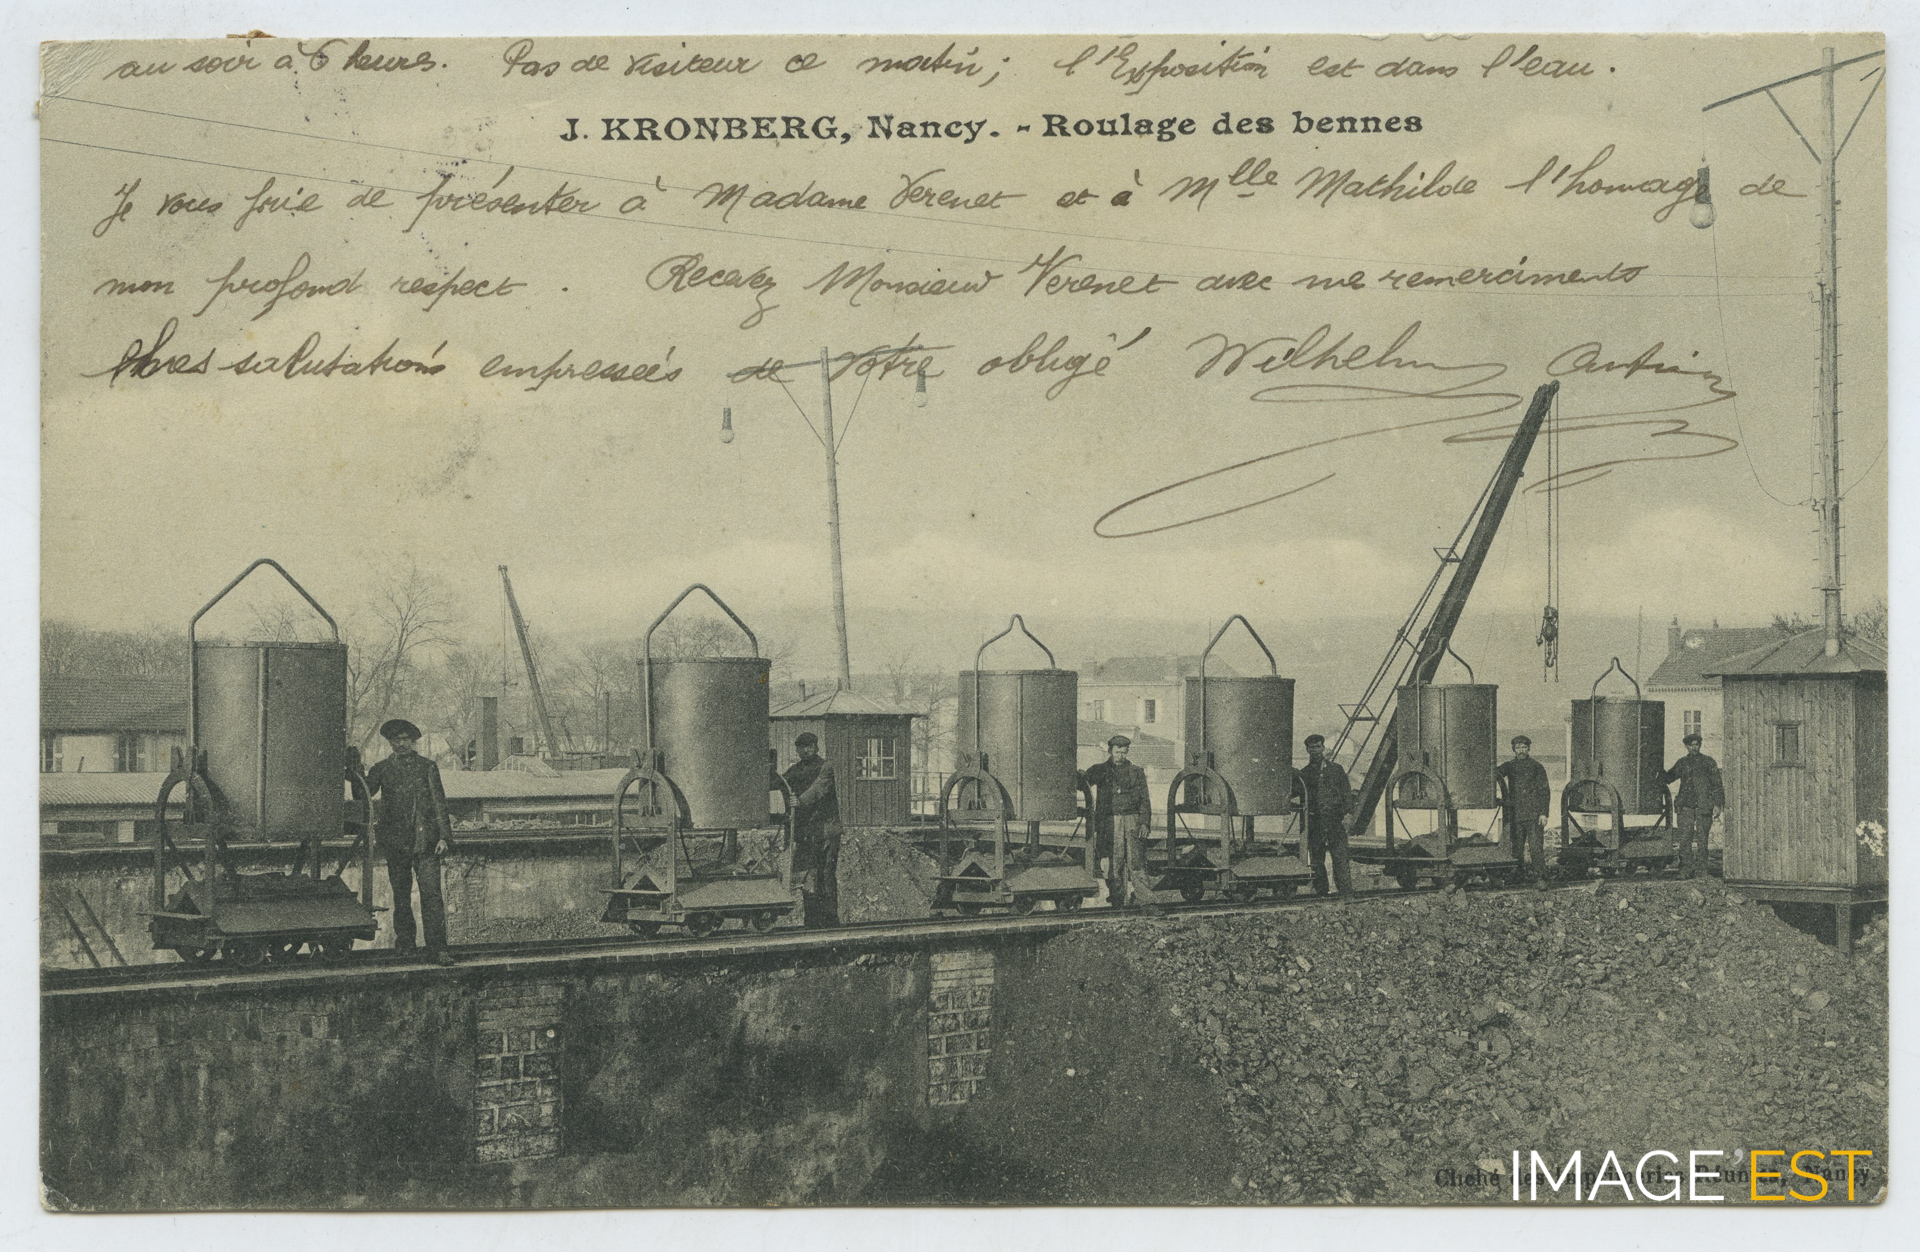 au soir à 6 heures. Pas de visiteur ce matin; l'Exposition est dans l'eau.
J. KRONBERG, Nancy. - Roulage des bennes
Je vous prie de présenter à Madame Verenet et à Mlle Mathilde l'homage de
mon profond respect. Recevez Monsieur Verenet avec me remerciments
et mes salutations empressées de votre obligé Wilhelm
Cliché des Imprimeries Réunies, Nancy
IMAGE'EST